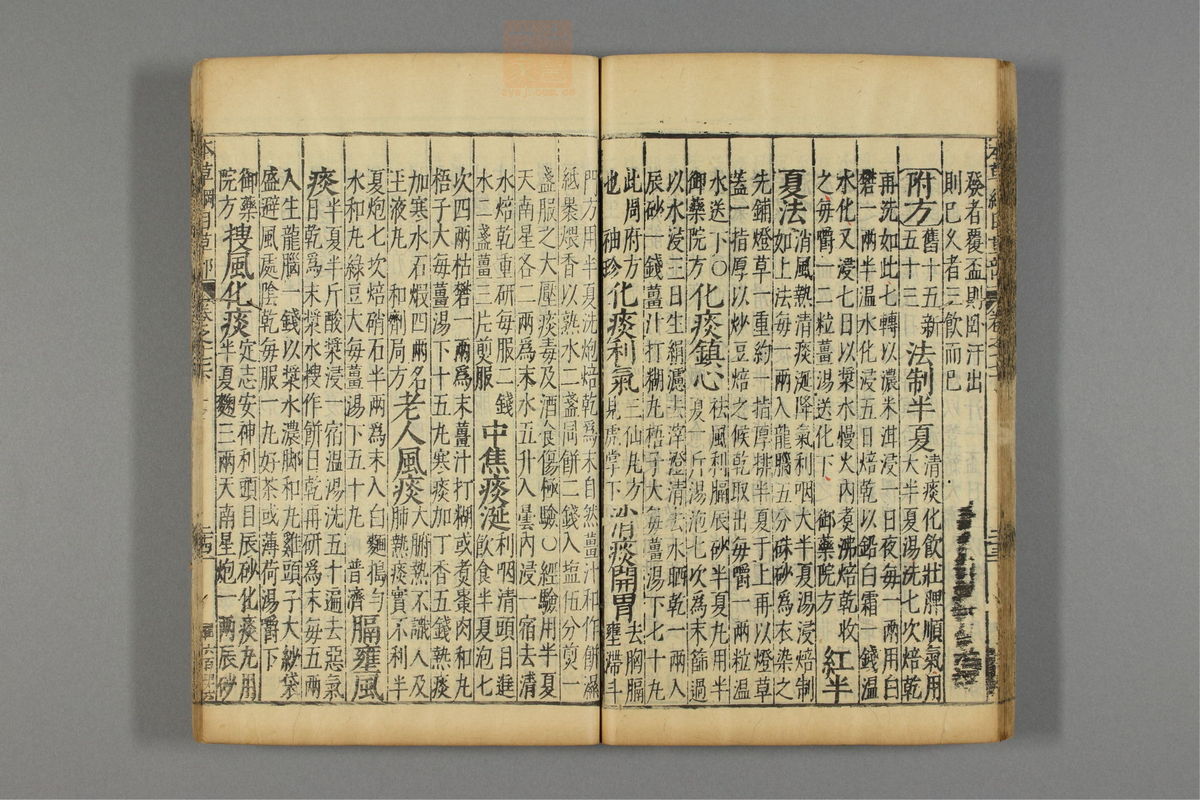 發者覆盃則臥汗出
則已久者三飲而已
附方
舊十五新
五十三
法制半夏
清痰化飲壯脾順氣用
大半夏湯洗七次焙乾
再洗如此七轉以濃米泔浸一日夜每一兩用白
礬一兩半溫水化浸五日焙乾以鉛白霜一錢溫
水化又浸七日以漿水慢火內煮沸焙乾收
之每嚼一二粒薑湯送化下之 御藥院方
紅半
夏法
消風熱清痰涎降氣利咽大半夏湯浸焙制
如上法每一兩入龍腦五分硃砂爲衣染之
先鋪燈草一重約一指厚排半夏于上再以燈草
蓋一指厚以炒豆焙之候乾取出每嚼一兩粒溫
水送下○
御藥院方
化痰鎮心
祛風利膈辰砂半夏丸用半
夏一斤湯泡七次爲末篩過
以水浸三日生絹濾去滓澄清去水晒乾一兩入
辰砂一錢薑汁打糊丸梧子大每薑湯下七十丸
此周府方
也 袖珍
化痰利氣
三仙丸方
見虎掌下
消痰開胃
去胸膈
壅滯斗
門方用半夏洗炮焙乾爲末自然薑汁和作餅濕
紙裹煨香以熟水二盞同餅二錢入塩伍分煎一
盞服之大壓痰毒及酒食傷極驗○經驗用半夏
天南星各二兩爲末水五升入曇內浸一宿去清
水焙乾重研每服二錢
水二盞薑三片煎服
中焦痰涎
利咽清頭目進
飲食半夏泡七
次四兩枯礬一兩爲末薑汁打糊或煮棗肉和丸
梧子大每薑湯下十五丸寒痰加丁香五錢熱痰
加寒水石煆四兩名
玉液丸 和劑局方
老人風痰
大腑熱不識人及
肺熱痰實不利半
夏炮七次焙硝石半兩爲末入白麵搗勻
水和丸綠豆大每薑湯下五十丸 普濟
膈壅風
痰
半夏半斤酸漿浸一宿溫湯洗五十遍去惡氣
日乾爲末漿水搜作餅日乾再研爲末每五兩
入生龍腦一錢以漿水濃脚和丸雞頭子大紗袋
盛避風處陰乾每服一丸好茶或薄荷湯嚼下
御藥
院方
搜風化痰
定志安神利頭目辰砂化痰丸用
半夏麴三兩天南星炮一兩辰砂
本草綱目草部